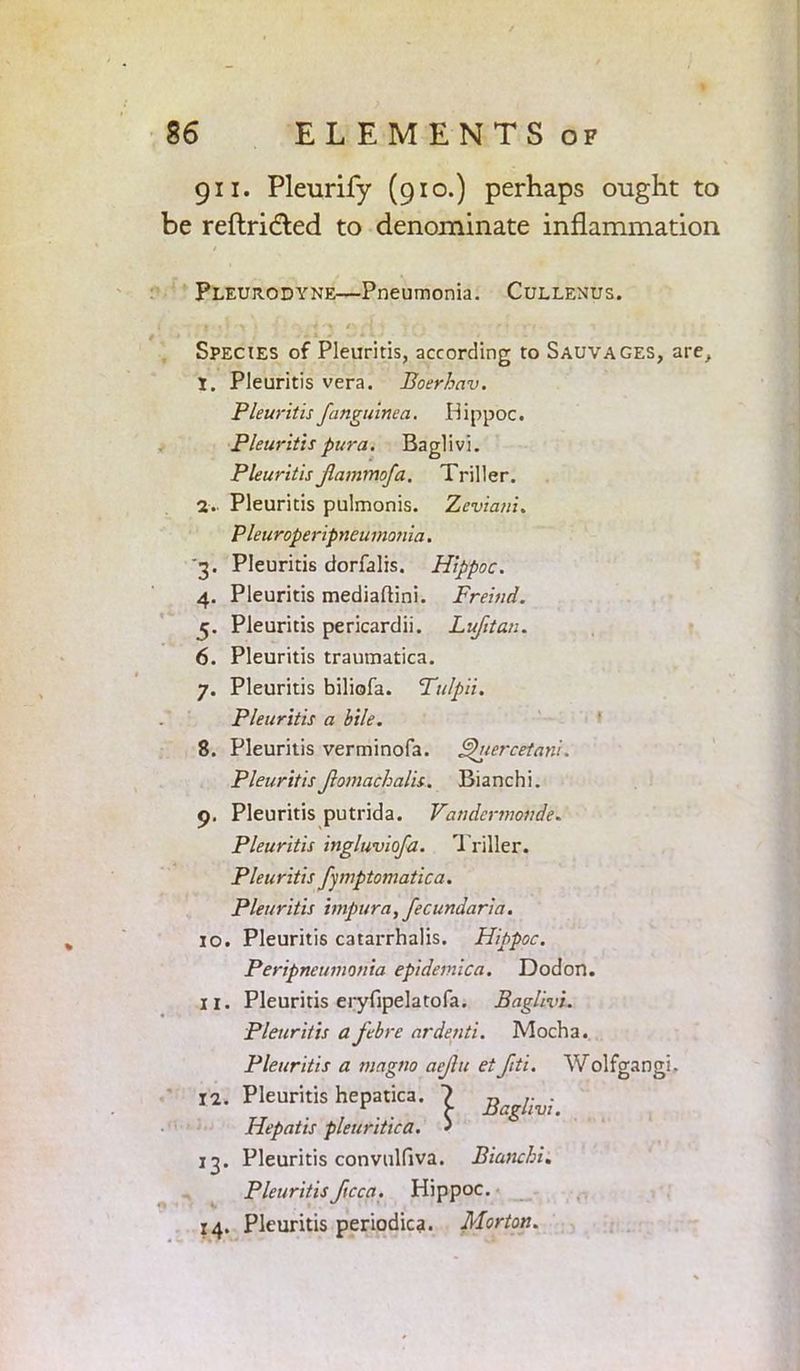 86 ELEMENTS OF
911. Pleuriſy (910.) perhaps ought to
be reſtricted to denominate inflammation
PLEURODYNE—Pneumonia. CULLENUS.
SPECIES of Pleuritis, according to SAUVAGES, are,
1. Pleuritis vera. Boerhav.
Pleuritis ſanguinea. Hippoc.
Pleuritis pura. Baglivi.
Pleuritis flammoſa. Triller.
2. Pleuritis pulmonis. Zeviani.
Pleuroperipneumonia.
3. Pleuritis dorſalis. Hippoc.
4. Pleuritis mediaſtini. Freind.
5. Pleuritis pericardii. Luſitan.
6. Pleuritis traumatica.
7. Pleuritis bilioſa. Tulpii.
Pleuritis a bile.
8. Pleuritis verminoſa. Quercetani.
Pleuritis ſtomachalis. Bianchi.
9. Pleuritis putrida. Vandermonde.
Pleuritis ingluvioſa. Triller.
Pleuritis ſymptomatica.
Pleuritis impura, ſecundaria.
10. Pleuritis catarrhalis. Hippoc.
Peripneumonia epidemica. Dodon.
11. Pleuritis eryſipelatoſa. Baglivi.
Pleuritis a febre ardenti. Mocha.
Pleuritis a magno aeſtu et ſiti. Wolfgangi.
12. Pleuritis hepatica. } Baglivi.
Hepatis pleuritica.
13. Pleuritis convulſiva. Bianchi.
Pleuritis ſicca. Hippoc.
14. Pleuritis periodica. Morton.